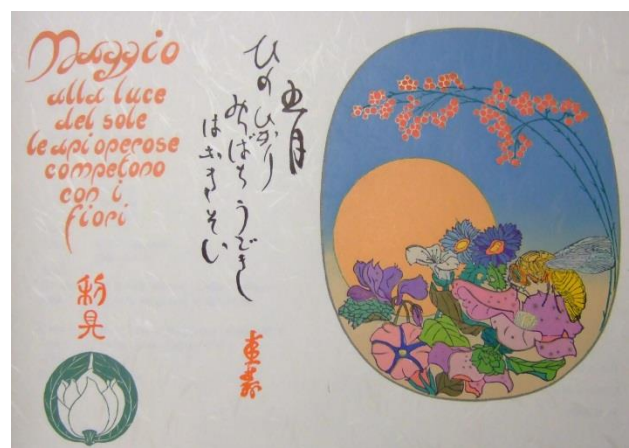 Maggio
alla luce
del sole
le api operose
competono
con i
fiori
五月
ひの ひかり
みつばち うごきし
はなきそい